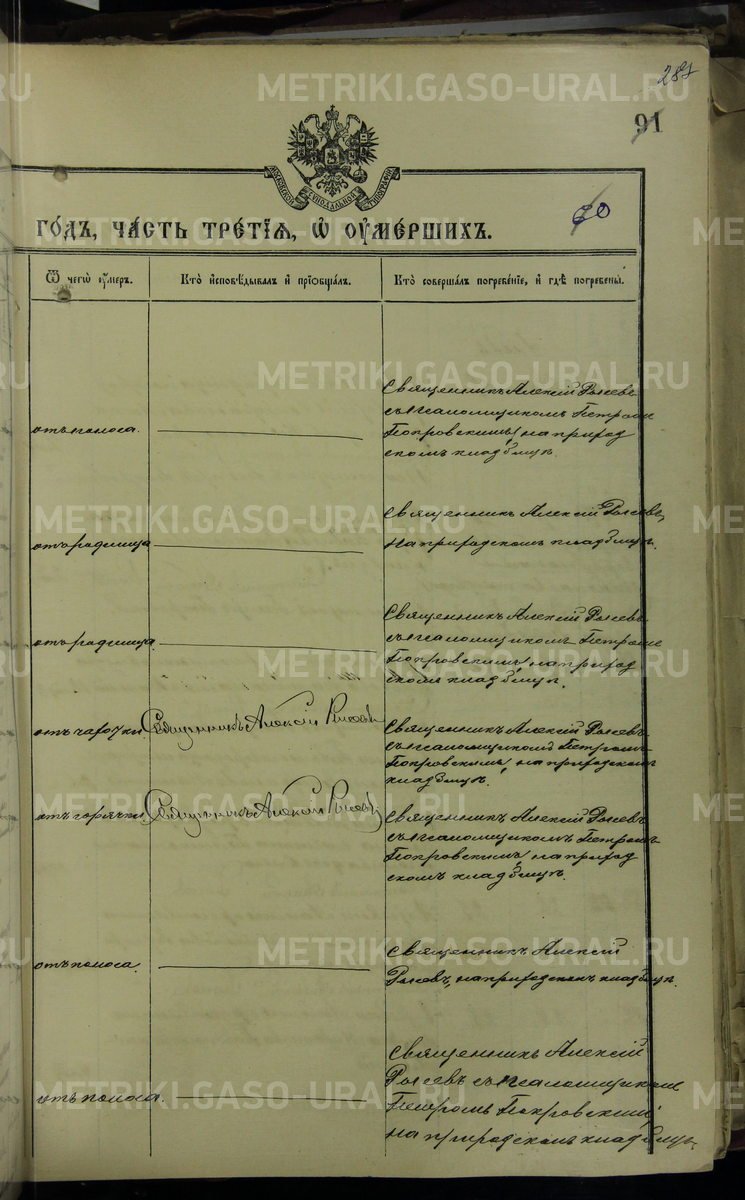 287
91
МОСКОВСКОЙ СѴНОДАЛЬНОЙ ТИПОГРАФІИ
60
ГО́ДЪ, ЧА́СТЬ ТРЕ́ТІѦ, Ѽ ОУ҆МЕ́РШИХЪ.
Ѿ чегѡ̀ оу҆́меръ.
Кто̀ и҆сповѣ́дывалъ и҆ прїѡбща́лъ.
Кто̀ соверша́лъ погребе́нїе, и҆ гдѣ̀ погребены̀.
отъ поноса.
Священникъ Алексій
съ псаломщикомъ Петромъ
Покровскимъ, на приход
скомъ кладбищѣ.
отъ родимца
Священникъ Алексій
на приходскомъ кладбищѣ.
отъ родимца
Священникъ Алексій
съ псаломщикомъ Петромъ
Покровскимъ, на приход
скомъ кладбищѣ.
отъ чахотки.
Священникъ Алексій
Священникъ Алексій
съ псаломщикомъ Петромъ
Покровскимъ, на приходскомъ
кладбищѣ.
отъ горячки
Священникъ Алексій
Священникъ Алексій
съ псаломщикомъ Петромъ
Покровскимъ, на приход
скомъ кладбищѣ.
отъ поноса.
Священникъ Алексій
на приходскомъ кладбищѣ.
отъ поноса.
Священникъ Алексій
съ псаломщикомъ
Петромъ Покровскимъ,
на приходскомъ кладбищѣ.
METRIKI.GASO-URAL.RU